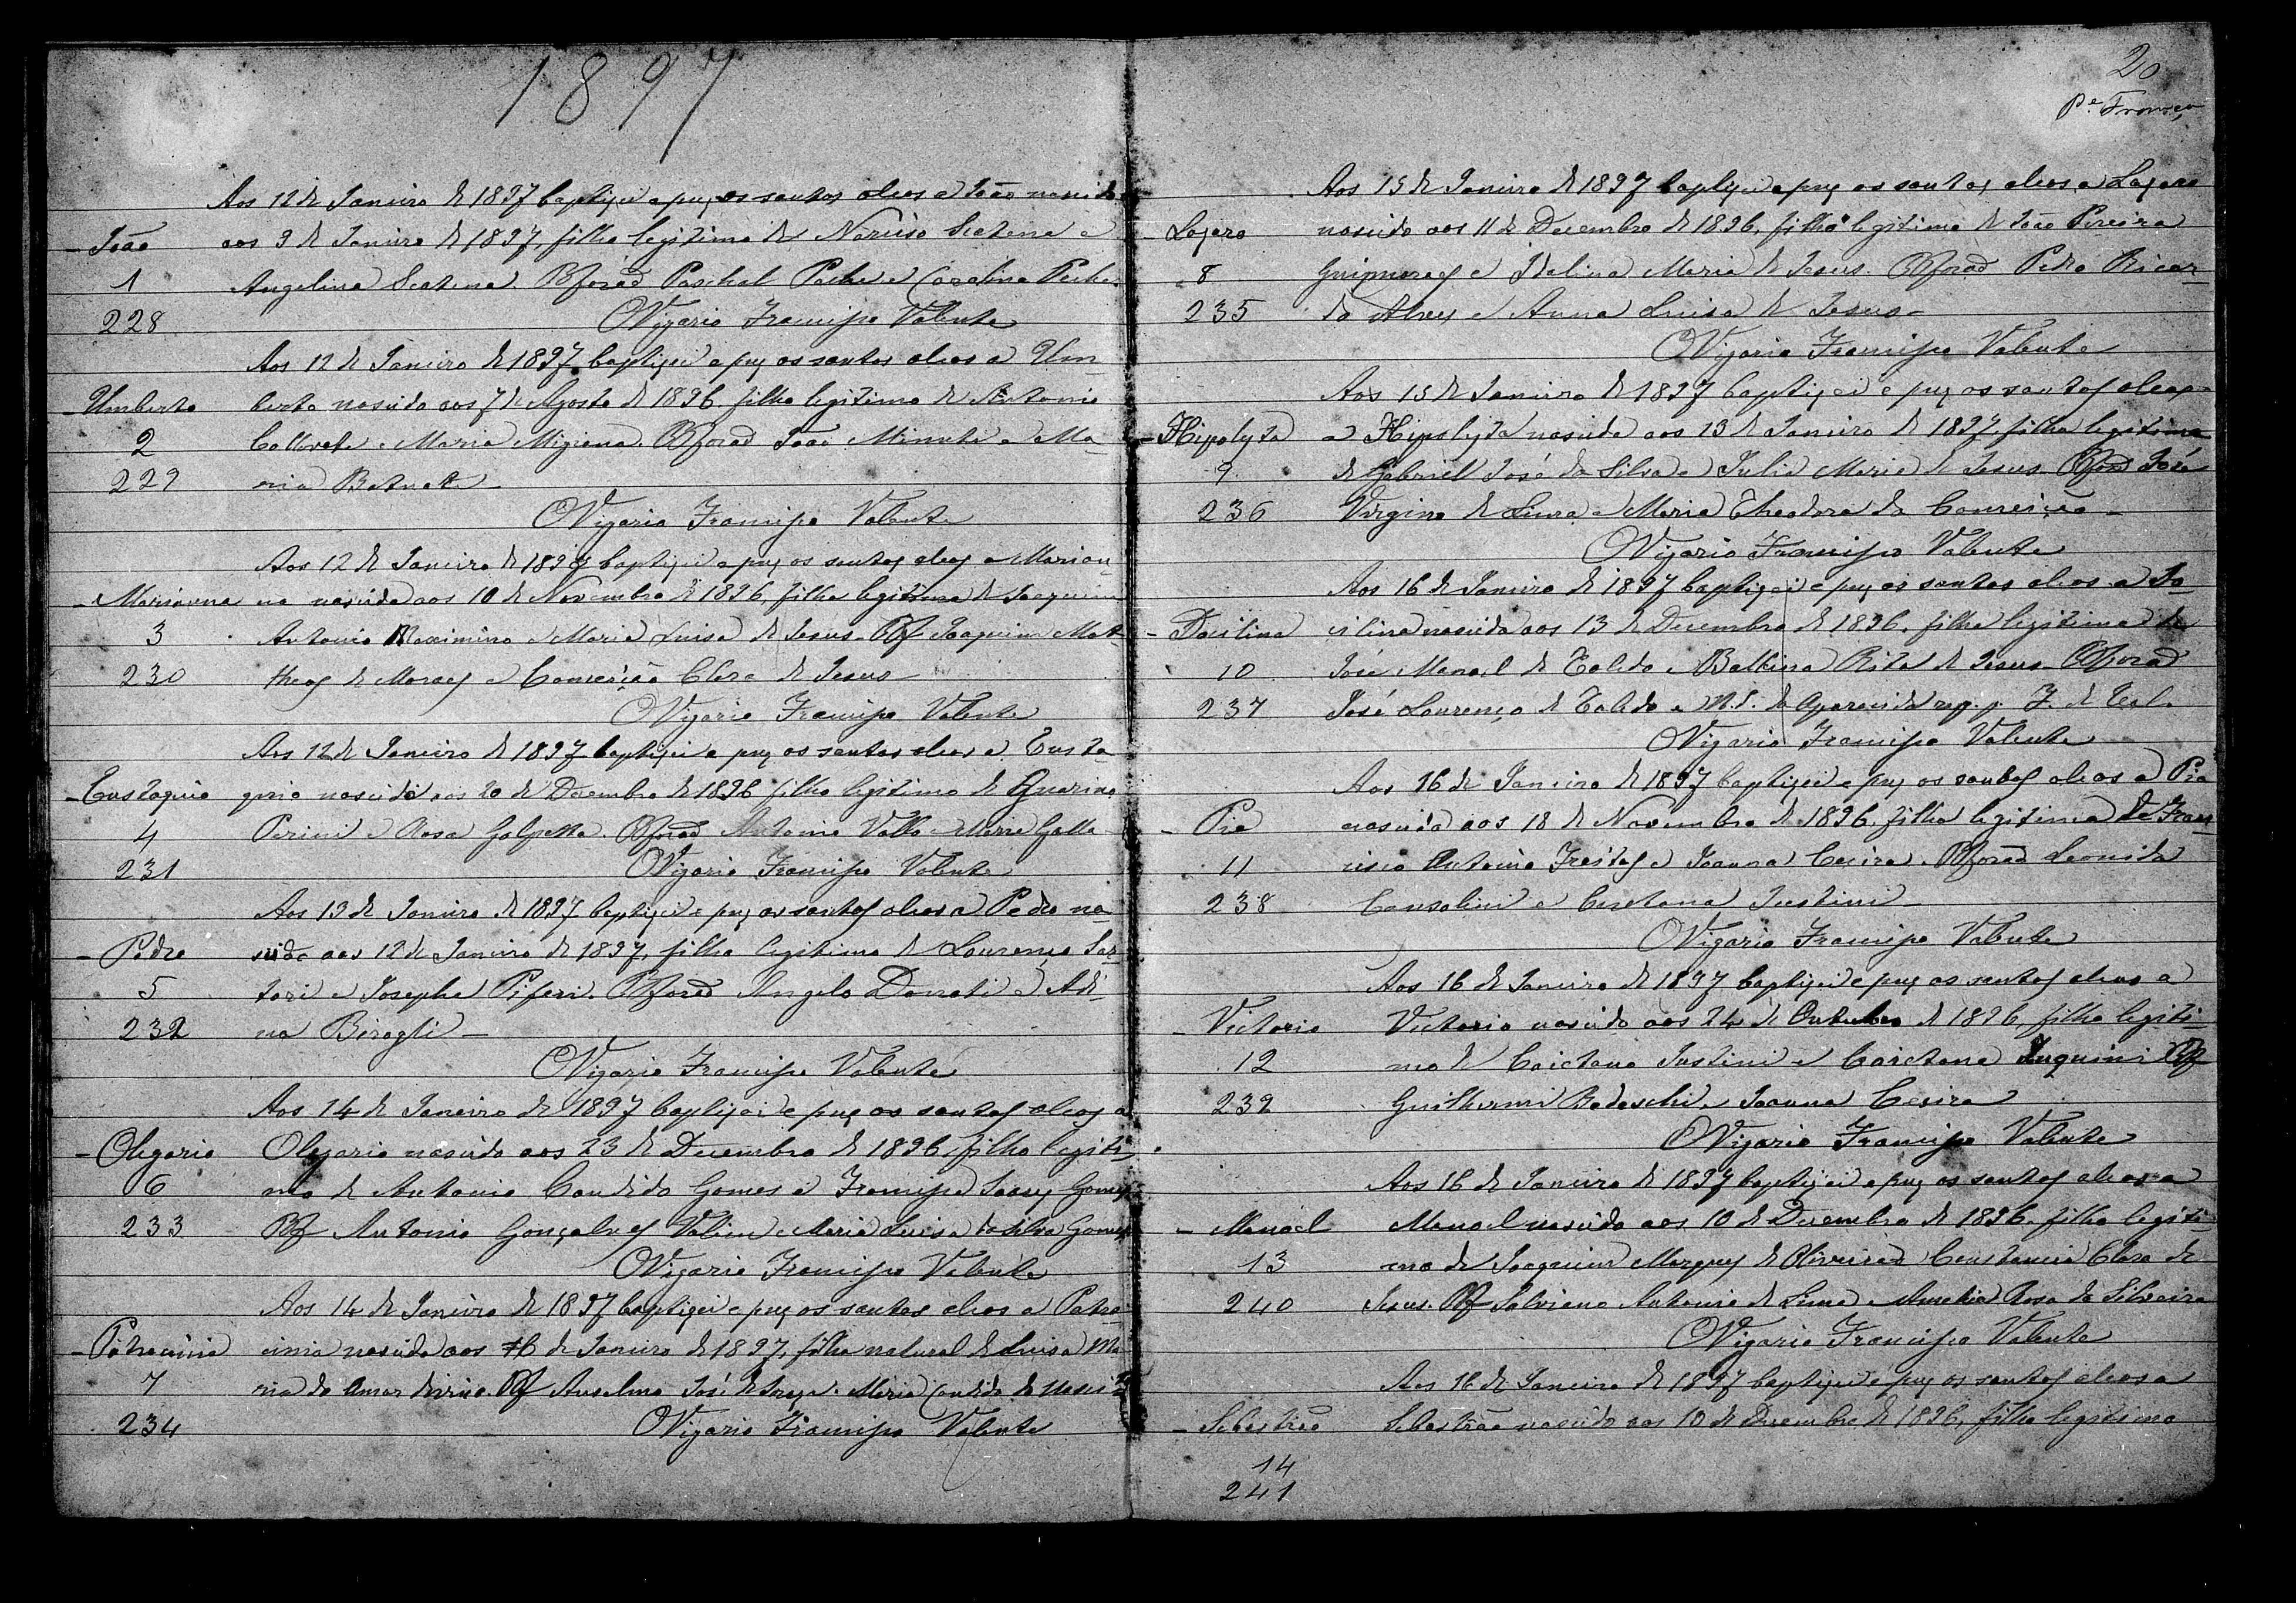 1897
Aos 12 de Janeiro de 1897 baptizei e puz os santos oleos a João nascido
João
aos 9 de Janeiro de 1897, filho legitimo de Narciso Scatena e
1
Angelina Scatena. PP forão Paschal Pache e Carolina Pache.
228
O Vigario Francisco Valente
Aos 12 de Janeiro de 1897 baptizei e puz os santos oleos a Um-
Umberto
berto nascido aos 7 de Agosto de 1896 filho legitimo de Antonio
2
e Maria Migiena. PP forão João Minuti e Ma-
229
ria
O Vigario Francisco Valente
Aos 12 de Janeiro de 1897 baptizei e puz os santos oleos a Marian-
Marianna
na nascida aos 10 de Novembro de 1896, filha legitima de Joaquim
3
Antonio Maximino e Maria Luisa de Jesus. PP Joaquim Mat-
230
theos de Moraes e Conceição Clara de Jesus
O Vigario Francisco Valente
Aos 12 de Janeiro de 1897 baptizei e puz os santos oleos a Eusta-
Eustaquio
quio nascido aos 20 de Dezembro de 1896 filho legitimo de Guarino
4
Perini e Rosa Galpetta. PP forão Antonio Vallo e Maria Galla
231
O Vigario Francisco Valente
Aos 13 de Janeiro de 1897 baptizei e puz os santos oleos a Pedro na-
Pedro
scido aos 12 de Janeiro de 1897, filho legitimo de Lourenço Sar-
5
tori e Josepha Piferi. PP forão Angelo Donati e Adi-
232
na Biragli
O Vigario Francisco Valente
Aos 14 de Janeiro de 1897 baptizei e puz os santos oleos a
Olegario
Olegario nascido aos 23 de Dezembro de 1896, filho legiti-
6
mo de Antonio Candido Gomes e Francisca Gomes
233
PP Antonio Gonçalves Valim e Maria Luisa da Silva Gomes
O Vigario Francisco Valente
Aos 14 de Janeiro de 1897 baptizei e puz os santos oleos a Patro-
Patrocinia
cinia nascida aos 6 de Janeiro de 1897, filha natural de Luisa Ma-
7
ria do Amor divino. PP Anselmo José de e Maria Candida de
234
O Vigario Francisco Valente
20
Pe. Franco
Aos 15 de Janeiro de 1897 baptizei e puz os santos oleos a Lazaro
Lazaro
nascido aos 11 de Dezembro de 1896, filho legitimo de João Pereira
8
Guimarães e Idalina Maria de Jesus. PP forão Pedro Ricar-
235
do Alves e Anna Luisa de Jesus
O Vigario Francisco Valente
Aos 15 de Janeiro de 1897 baptizei e puz os santos oleos
Hipolyta
a Hipolyta nascida aos 13 de Janeiro de 1897 filha legitima
9
de Gabriel José da Silva e Julia Maria de Jesus. PP forão José
236
Virgino de Lima e Maria Theodora da Conceição
O Vigario Francisco Valente
Aos 16 de Janeiro de 1897 baptizei e puz os santos oleos a Do-
Docilina
cilina nascida aos 13 de Dezembro de 1896, filha legitima de
10
José Manoel de Toledo e Balbina Rita de Jesus. PP forão
237
José Lourenço de Toledo e N. S. da Aparecida rep. p. J. de Tol.
O Vigario Francisco Valente
Aos 16 de Janeiro de 1897 baptizei e puz os santos oleos a Pia
Pia
nascida aos 18 de Novembro de 1896, filha legitima de Fran-
11
cisco Antonio Freitas e Joanna Cesira. PP forão Leonida
238
Consolini e Caetana Justini
O Vigario Francisco Valente
Aos 16 de Janeiro de 1897 baptizei e puz os santos oleos a
Victorio
Victorio nascido aos 24 de Outubro de 1896, filho legiti-
12
mo de Caietano Justini e Caietana Juquini PP
239
Guilherme Bedeschi e Joanna Cesira
O Vigario Francisco Valente
Aos 16 de Janeiro de 1897 baptizei e puz os santos oleos a
Manoel
Manoel nascido aos 10 de Dezembro de 1896, filho legiti-
13
mo de Joaquim Marques de Oliveira e Constancia Clara de
240
Jesus. PP Salviano Antonio de Lima e Amelia Rosa da Silveira
O Vigario Francisco Valente
Aos 16 de Janeiro de 1897 baptizei e puz os santos oleos a
Sebastião
Sebastião nascido aos 10 de Dezembro de 1896, filho legitimo
14
241